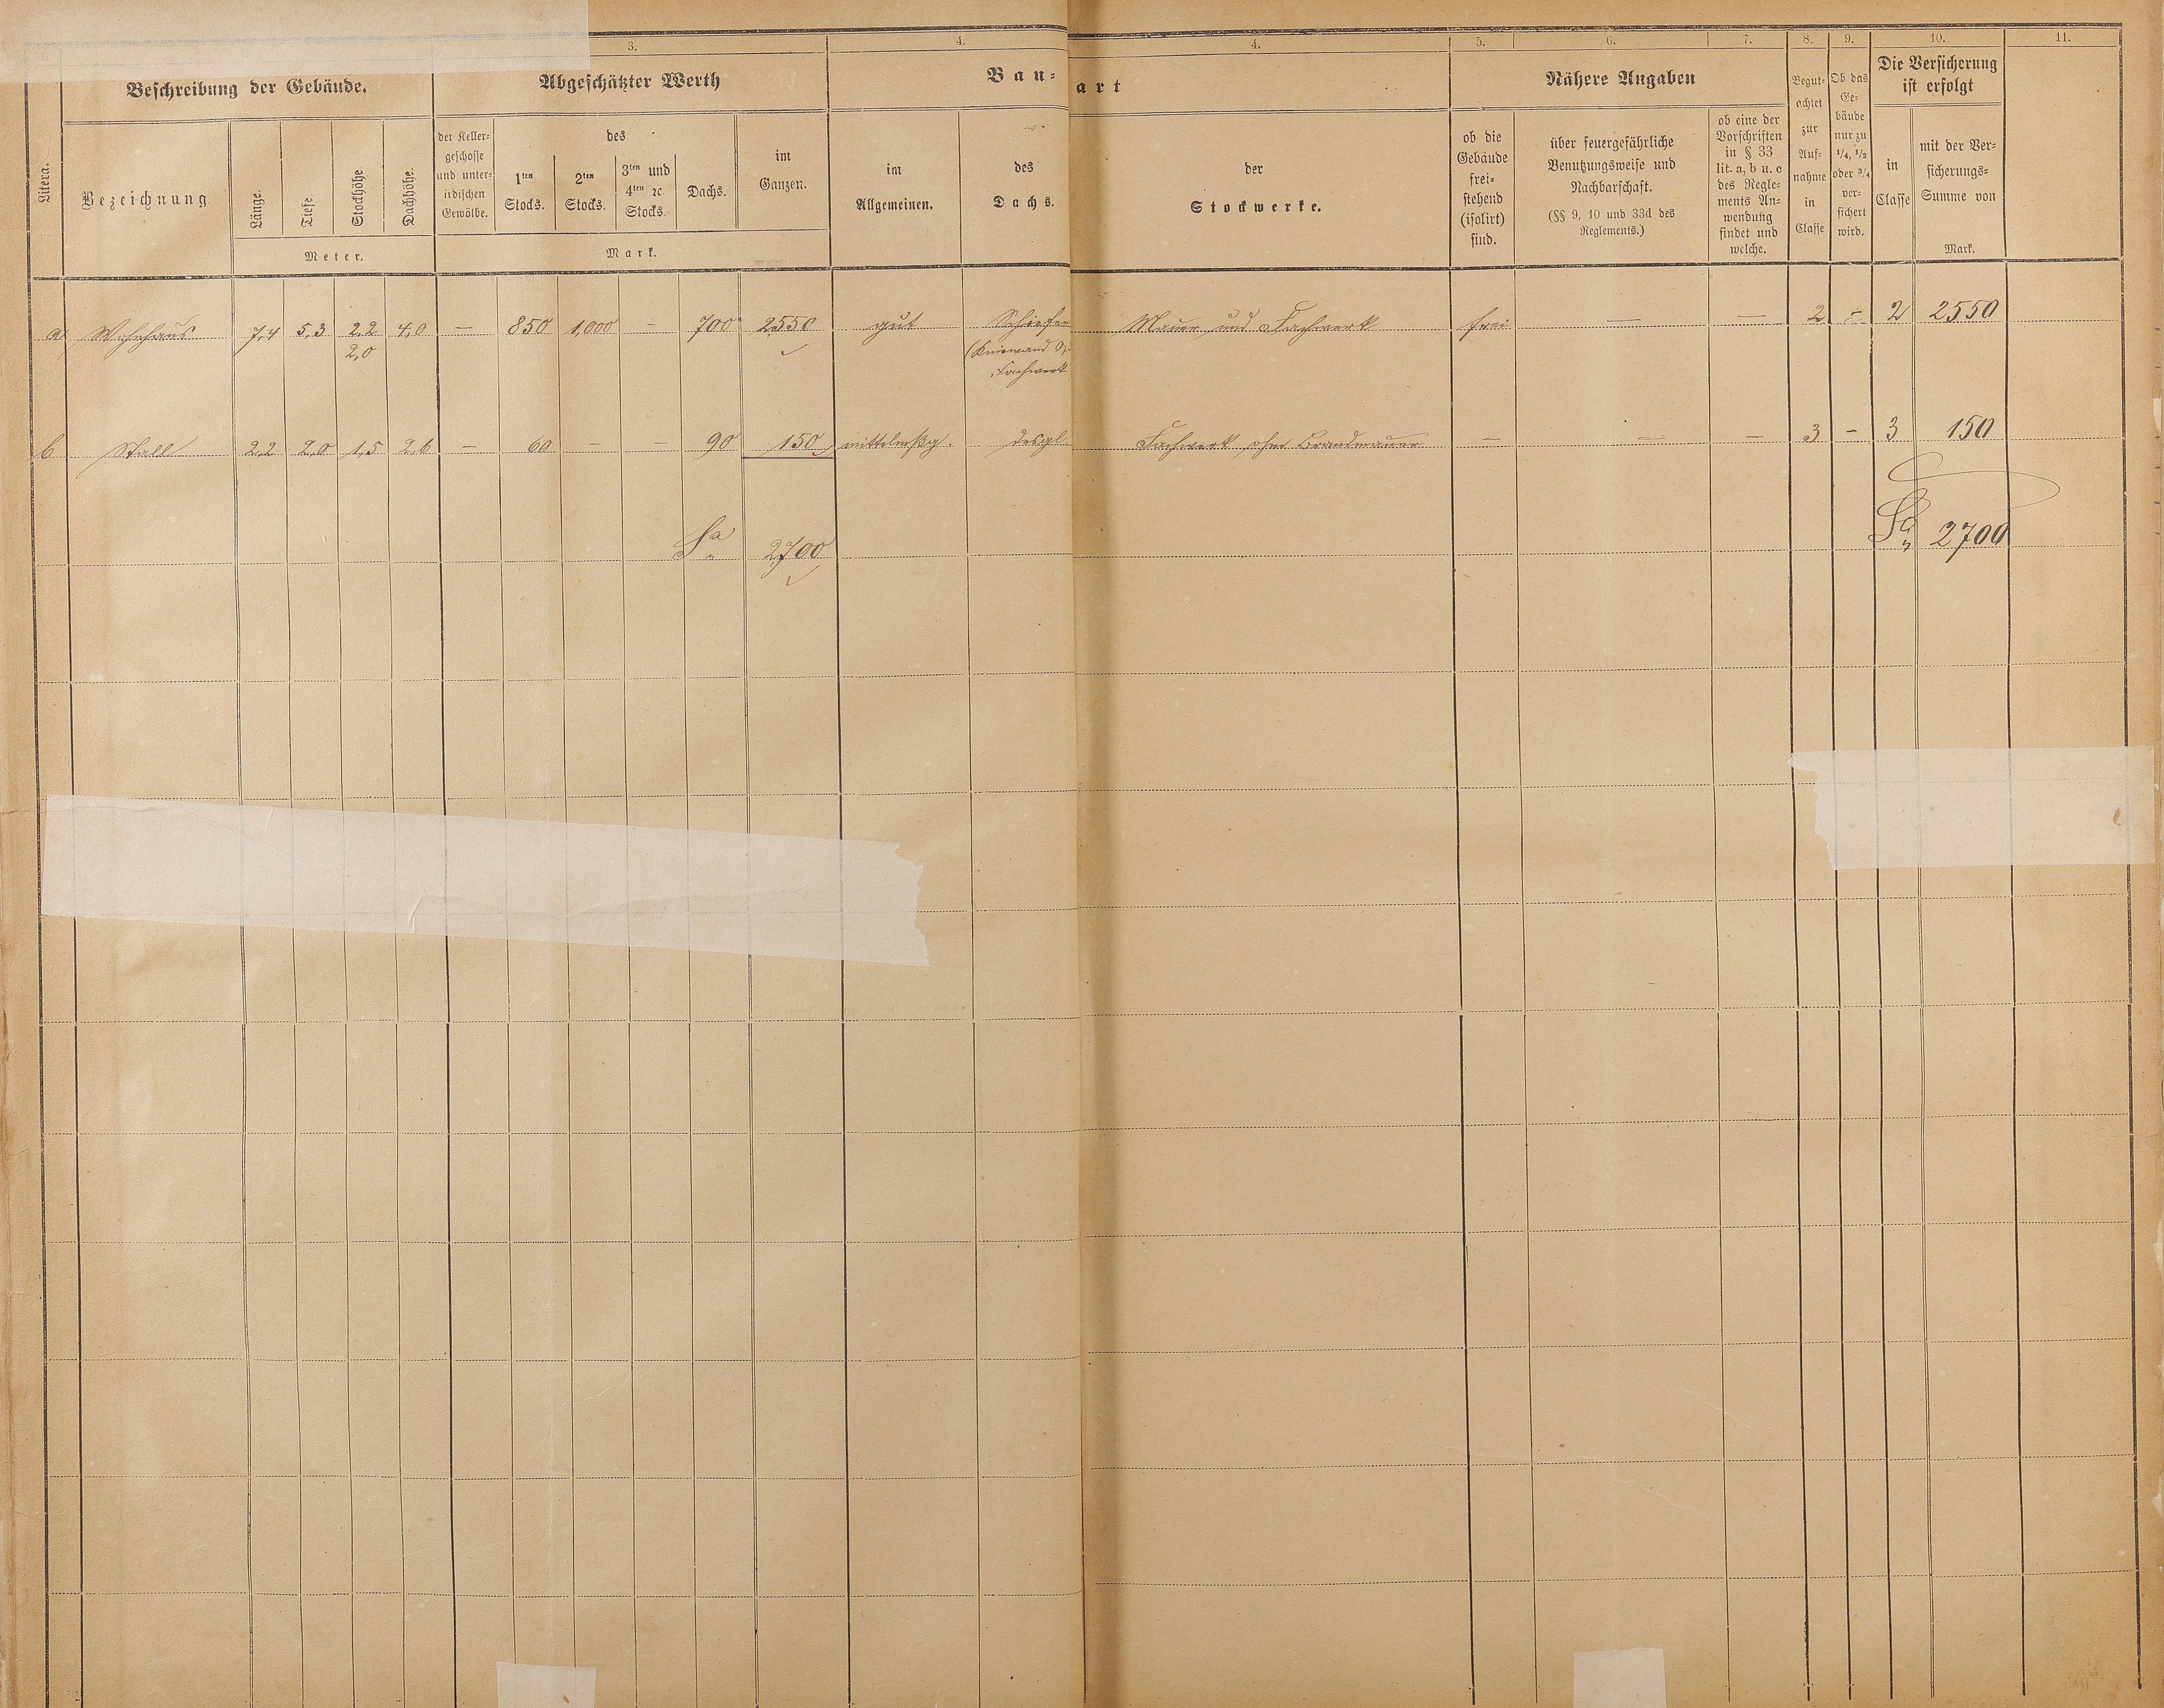 3. 4. 4. 5. 6. 7. 8. 9. 10. 11.
Beschreibung der Gebäude. Abgeschätzter Werth Bau= art Nähere Angaben
Die Versicherung
ist erfolgt
Litera.
Bezeichnung.
Länge.
Tiefe.
Stockhöhe.
Dachhöhe.
Meter.
der Keller=
geschosse
und unter=
irdischen
Gewölbe.
des
1ten
Stocks.
2ten
Stocks.
3ten und
4ten ꝛc.
Stocks.
Dachs.
im
Ganzen.
Mark.
im
Allgemeinen.
des
Dachs.
der
Stockwerke.
ob die
Gebäude
frei=
stehend
(isolirt)
sind.
über feuergefährliche
Benutzungsweise und
Nachbarschaft.
(§§ 9, 10 und 33d des
Reglements.)
ob eine der
Vorschriften
in § 33
lit. a, b u. c
des Regle=
ments An=
wendung
findet und
welche.
Begut=
achtet
zur
Auf=
nahme
in
Classe
Ob das
Ge=
bäude
nur zu
1/4, 1/2
oder 3/4
ver=
sichert
wird.
in
Classe
mit der Ver=
sicherungs=
Summe von
Mark.
a Wohnhaus 7,4 5,3 2,2 4,0 — 850 1,000 — 700 2550 gut Schiefer Mauer und Fachwerk frei — — 2 – 2 2550
2,0 (Kniewand
Fachwerk
b Stall 2,2 2,0 1,5 2,6 — 60 — — 90 150 mittelmßg. desgl. Fachwerk ohne Brandmauer — — — 3 – 3 150
Sa 2700 Sa 2700